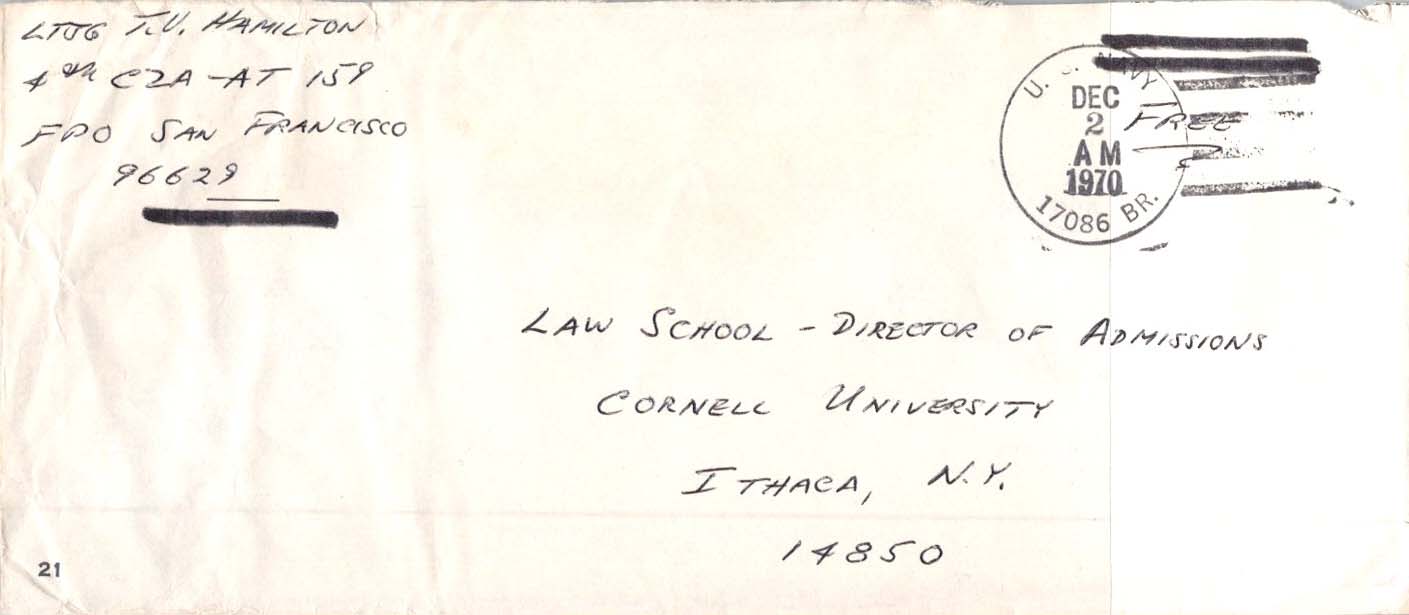 LTJG T.V. HAMILTON
4th CZA-AT 159
FPO SAN FRANCISCO
96629
U. S. NAVY
DEC
2
AM
1970
17086 BR.
FREE
LAW SCHOOL - DIRECTOR OF ADMISSIONS
CORNELL UNIVERSITY
ITHACA, N.Y.
14850
21